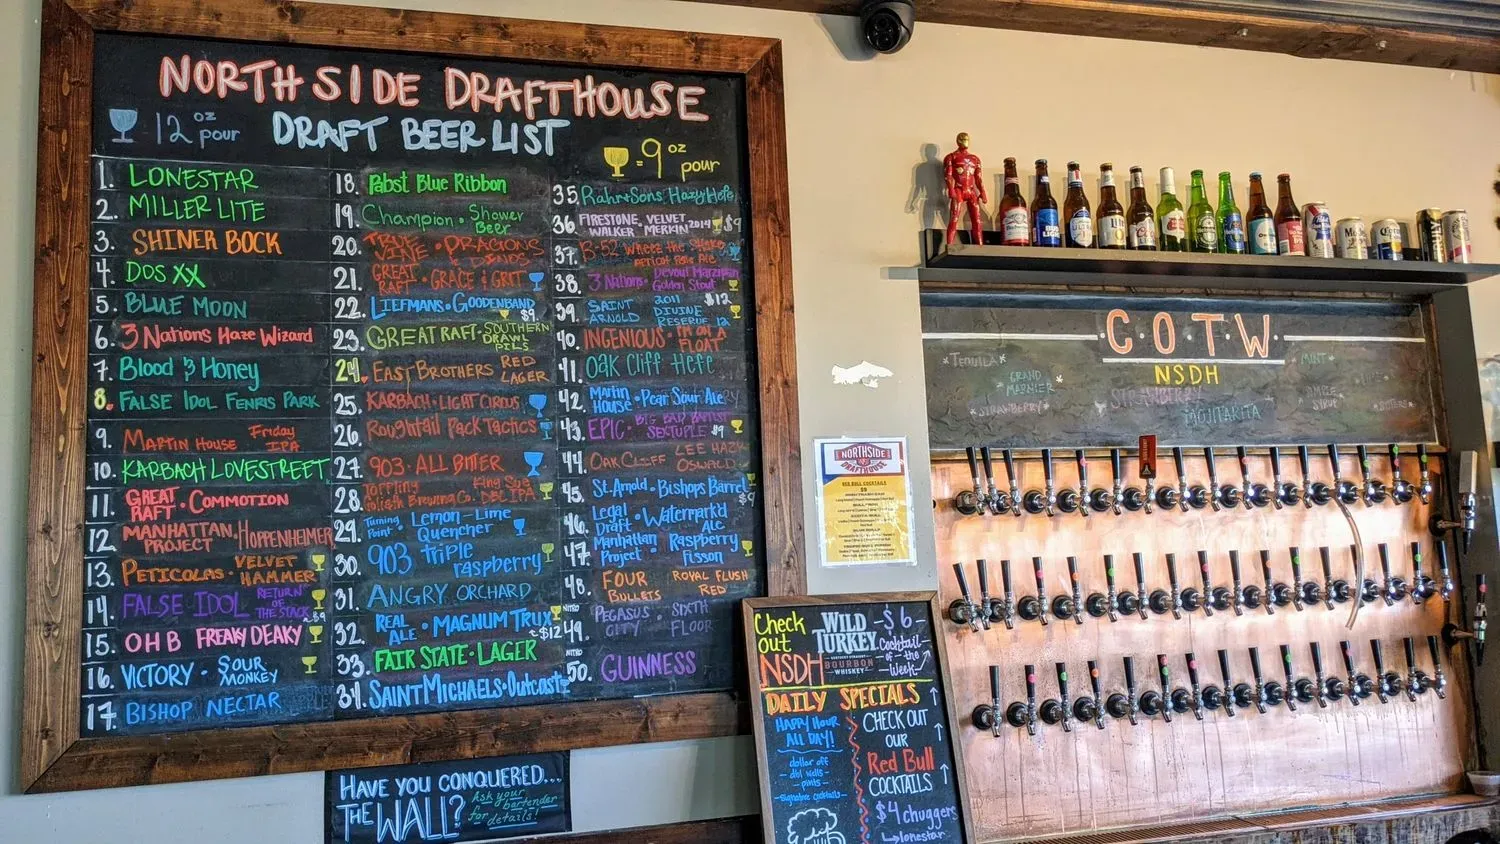 NORTHSIDE DRAFTHOUSE
12 oz pour
DRAFT BEER LIST
= 9 oz pour
1. LONESTAR
2. MILLER LITE
3. SHINER BOCK
4. DOS XX
5. BLUE MOON
6. 3 Nations Haze Wizard
7. Blood & Honey
8. FALSE IDOL FENRIS PARK
9. MARTIN HOUSE Friday IPA
10. KARBACH LOVESTREET
11. GREAT RAFT · COMMOTION
12. MANHATTAN PROJECT · HOPPENHEIMER
13. PETICOLAS · VELVET HAMMER
14. FALSE IDOL RETURN OF THE STACK $9
15. OHB FREAKY DEAKY
16. VICTORY · SOUR MONKEY
17. BISHOP NECTAR
18. Pabst Blue Ribbon
19. Champion · Shower Beer
20. TRUE VINE · DRAGONS & DINOS
21. GREAT RAFT · GRACE & GRIT
22. LIEFMANS · GOUDENBAND $9
23. GREAT RAFT · SOUTHERN DRAWL PILS
24. EAST BROTHERS RED LAGER
25. KARBACH · LIGHT CIRCUS
26. Roughtail Pack Tactics
27. 903 · ALL BITTER
28. Toppling Goliath Brewing Co. King Sue DBL IPA
29. Turning Point · Lemon-Lime Quencher
30. 903 triple raspberry
31. ANGRY ORCHARD
32. REAL ALE · MAGNUM TRUX $12
33. FAIR STATE · LAGER
34. SAINT MICHAELS · Outcast
35. Rahr & Sons Hazy Hefe
36. FIRESTONE WALKER VELVET MERKIN 2014 $9
37. B-52 Wheez the
Apricot Pale Ale
38. 3 Nations · Devout Marzipan Golden Stout
39. SAINT ARNOLD 2011 DIVINE RESERVE 12 $12
40. INGENIOUS · I'M ON A FLOAT
41. OAK Cliff HEFE
42. Martin House · Pear Sour Ale
43. EPIC · BIG BAD BAPTIST SEXTUPLE $9
44. OAK CLIFF LEE HARVEY OSWALD
45. St. Arnold · Bishops Barrel $9
46. Legal Draft · Watermark'd Ale
47. Manhattan Project · Raspberry Fission
48. FOUR BULLETS ROYAL FLUSH RED
NITRO
49. PEGASUS CITY · SIXTH FLOOR
NITRO
50. GUINNESS
HAVE YOU CONQUERED...
THE WALL?
Ask your bartender for details!
Check out NSDH
WILD TURKEY
BOURBON
WHISKEY
$6 Cocktail of the Week
DAILY SPECIALS
HAPPY HOUR ALL DAY!
dollar off
- dbl wells -
- pints -
- signature cocktails -
CHECK OUT OUR
Red Bull
COCKTAILS
$4 chuggers
lonestar
NORTHSIDE
DRAFTHOUSE
RED BULL COCKTAILS
$9
C·O·T·W
NSDH
*TEQUILA*
GRAND MARNIER
*STRAWBERRY*
STRAWBERRY
MOJITARITA
MINT
SIMPLE SYRUP
LIME
BITTERS
BUD LIGHT
ULTRA
Lite
Coors
TRULY